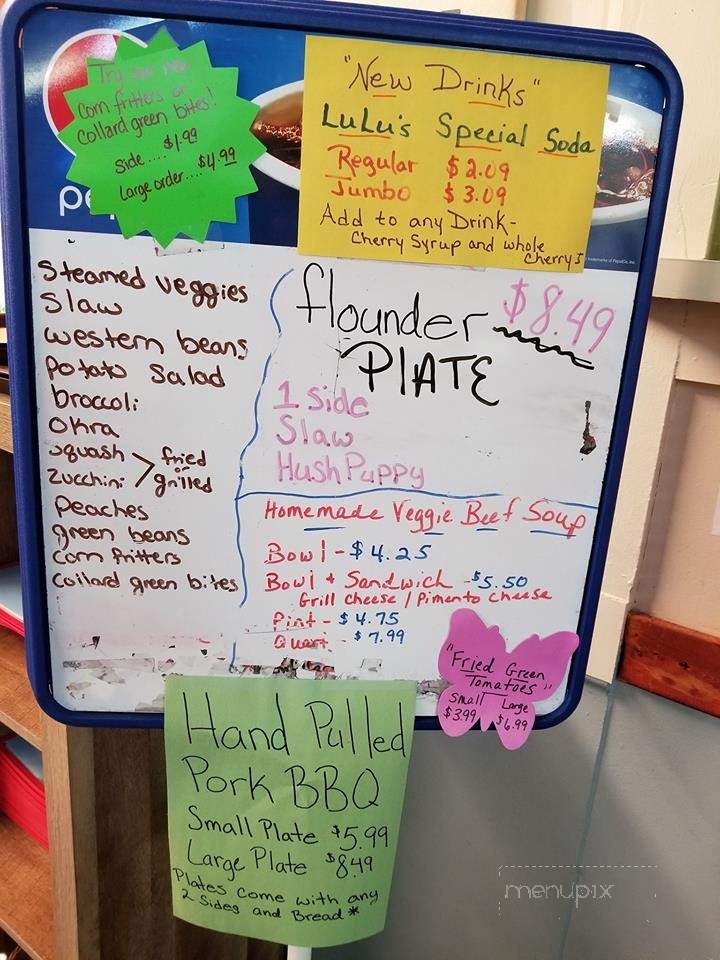 Try our new
corn fritters or
collard green bites!
side.... $1.99
Large order.... $4.99
pe
"New Drinks"
LuLu's Special Soda
Regular $2.09
Jumbo $3.09
Add to any Drink-
Cherry Syrup and whole
Cherry!
Steamed veggies
Slaw
western beans
Potato Salad
broccoli
Okra
Squash
Zucchini
fried
or
grilled
Peaches
green beans
corn fritters
Collard green bites
flounder
PLATE
$8.49
1 Side
Slaw
Hush Puppy
Homemade Veggie Beef Soup
Bowl - $4.25
Bowl + Sandwich - $5.50
Grill cheese / Pimento cheese
Pint - $4.75
Quart - $7.99
"Fried Green
Tomatoes"
Small Large
$3.99 $6.99
Hand Pulled
Pork BBQ
Small Plate $5.99
Large Plate $8.49
Plates come with any
2 Sides and Bread*
menupix